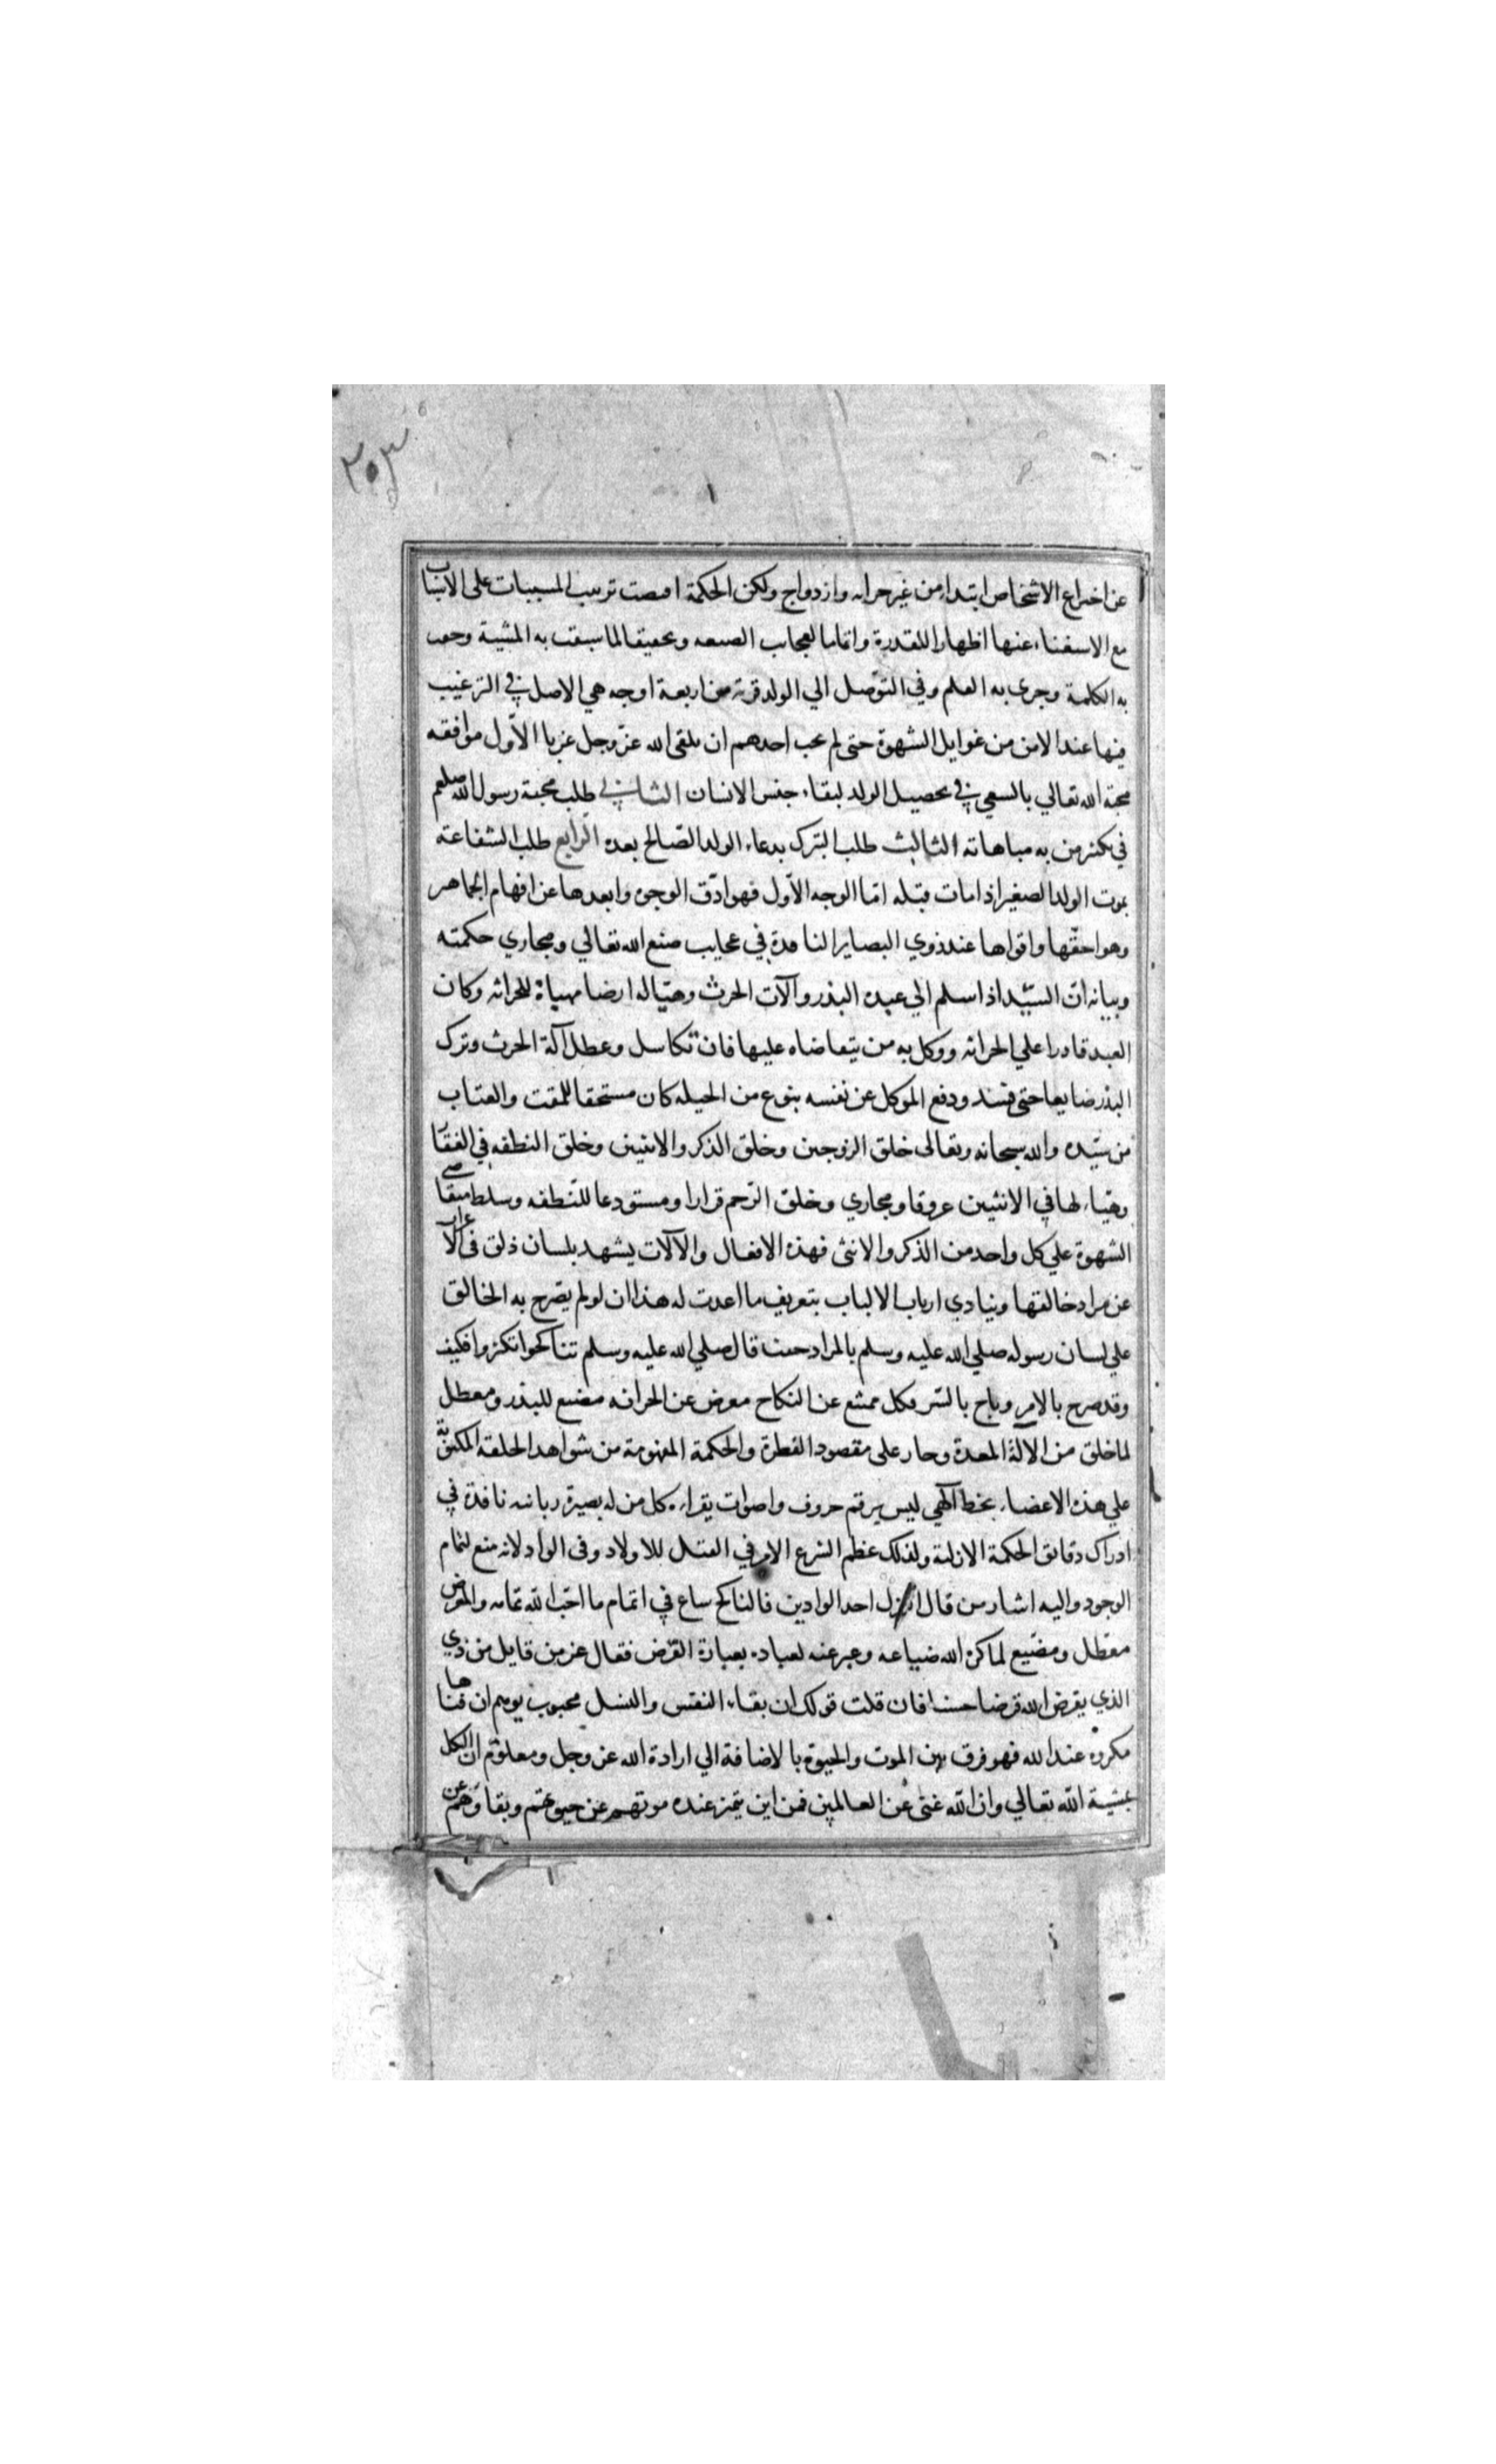 ٣٠٣
عن اختراع الاشخاص ابتداء من غير حراثه وازدواج ولكن الحكمة اقتضت ترتيب المسببات على الاسباب
مع الاستغناء عنها اظهارا للقدرة واتماما لعجايب الصنعه وتحقيقا لما سبقت به المشية وحقت
به الكلمة وجرى به القلم وفي التوصل الي الولد قربة من اربعة اوجه هي الاصل في الترغيب
فيها عند الامن من غوايل الشهوة حتى لم يحب احدهم ان يلقى الله عز وجل عزبا الاول موافقه
محبة الله تعالي بالسعي في تحصيل الولد لبقاء جنس الانسان الثاني طلب محبة رسول الله صلعم
في تكثير من به مباهاته الثالث طلب التبرك بدعاء الولد الصالح بعده الرابع طلب الشفاعة
بموت الولد الصغير اذا مات قبله اما الوجه الاول فهو ادق الوجوه وابعدها عن افهام الجماهير
وهو احقها واقواها عند ذوي البصاير النافدة في عجايب صنع الله تعالي ومجاري حكمته
وبيانه ان السيد اذا سلم الي عبده البذر وآلات الحرث وهيا له ارضا مهياة للحراثه وكان
العبد قادرا علي الحراثه ووكل به من يتقاضاه عليها فان تكاسل وعطل آلة الحرث وترك
البذر ضايعا حتى فسد ودفع الموكل عن نفسه بنوع من الحيله كان مستحقا للمقت والعتاب
من سيده والله سبحانه وتعالى خلق الزوجين وخلق الذكر والانثيين وخلق النطفه في الفقا
وهياء لها في الانثيين عروقا ومجاري وخلق الرحم قرارا ومستودعا للنطفه وسلط متقاضي
الشهوة علي كل واحد من الذكر والانثى فهذه الافعال والآلات يشهد بلسان ذلق في الاعراب
عن مراد خالقها وينادي ارباب الالباب بتعريف ما اعدت له هذا ان لو لم يصرح به الخالق
علي لسان رسوله صلي الله عليه وسلم بالمراد حيث قال صلي الله عليه وسلم تناكحوا تكثروا فكيف
وقد صرح بالامر وباح بالسر فكل ممتنع عن النكاح معرض عن الحراثه مضيع للبذر ومعطل
لما خلق من الالة المعدة وجار على مقصود الفطرة والحكمة المفهومة من شواهد الخلقة المكتوبة
علي هذه الاعضاء بخط آلهي ليس برقم حروف واصوات يقراءه كل من له بصيرة ربانيه نافدة في
ادراك دقايق الحكمة الازلية ولذلك عظم الشرع الامر في القتل للاولاد وفي الواد لانه منع لتمام
الوجود واليه اشار من قال العزل احد الوادين فالناكح ساع في اتمام ما احب الله تمامه والمعرض
معطل ومضيع لما كره الله ضياعه وعبر عنه لعباده بعبارة القرض فقال عز من قايل من ذي
الذي يقرض الله قرضا حسنا فان قلت قولك ان بقاء النفس والنسل محبوب يوهم ان فناها
مكروه عند الله فهو فرق بين الموت والحيوة بالاضافة الي ارادة الله عز وجل ومعلوم ان الكل
بمشية الله تعالي وان الله غنى عن العالمين فمن اين يتميز عنده موتهم عن حيوتهم وبقاؤهم عن